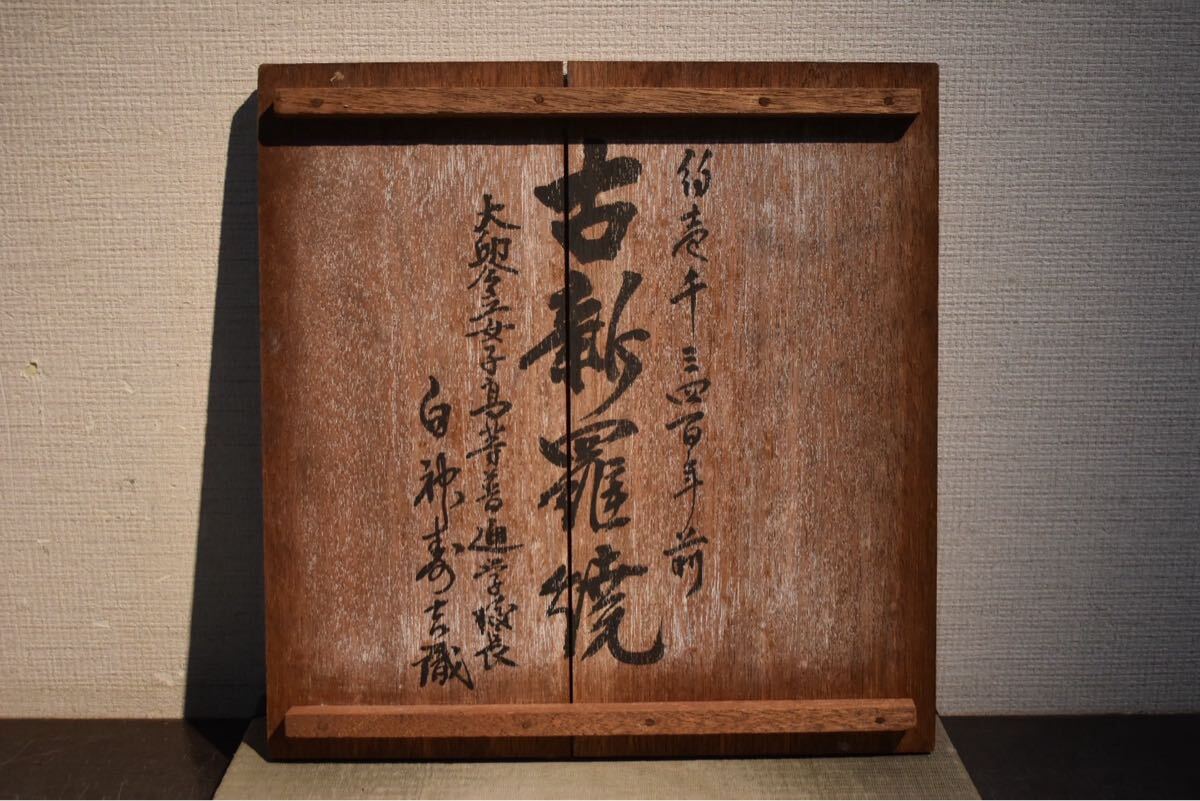 約壱千三四百年前
古新羅焼
大邱公立女子高等普通学校長
白神寿吉識